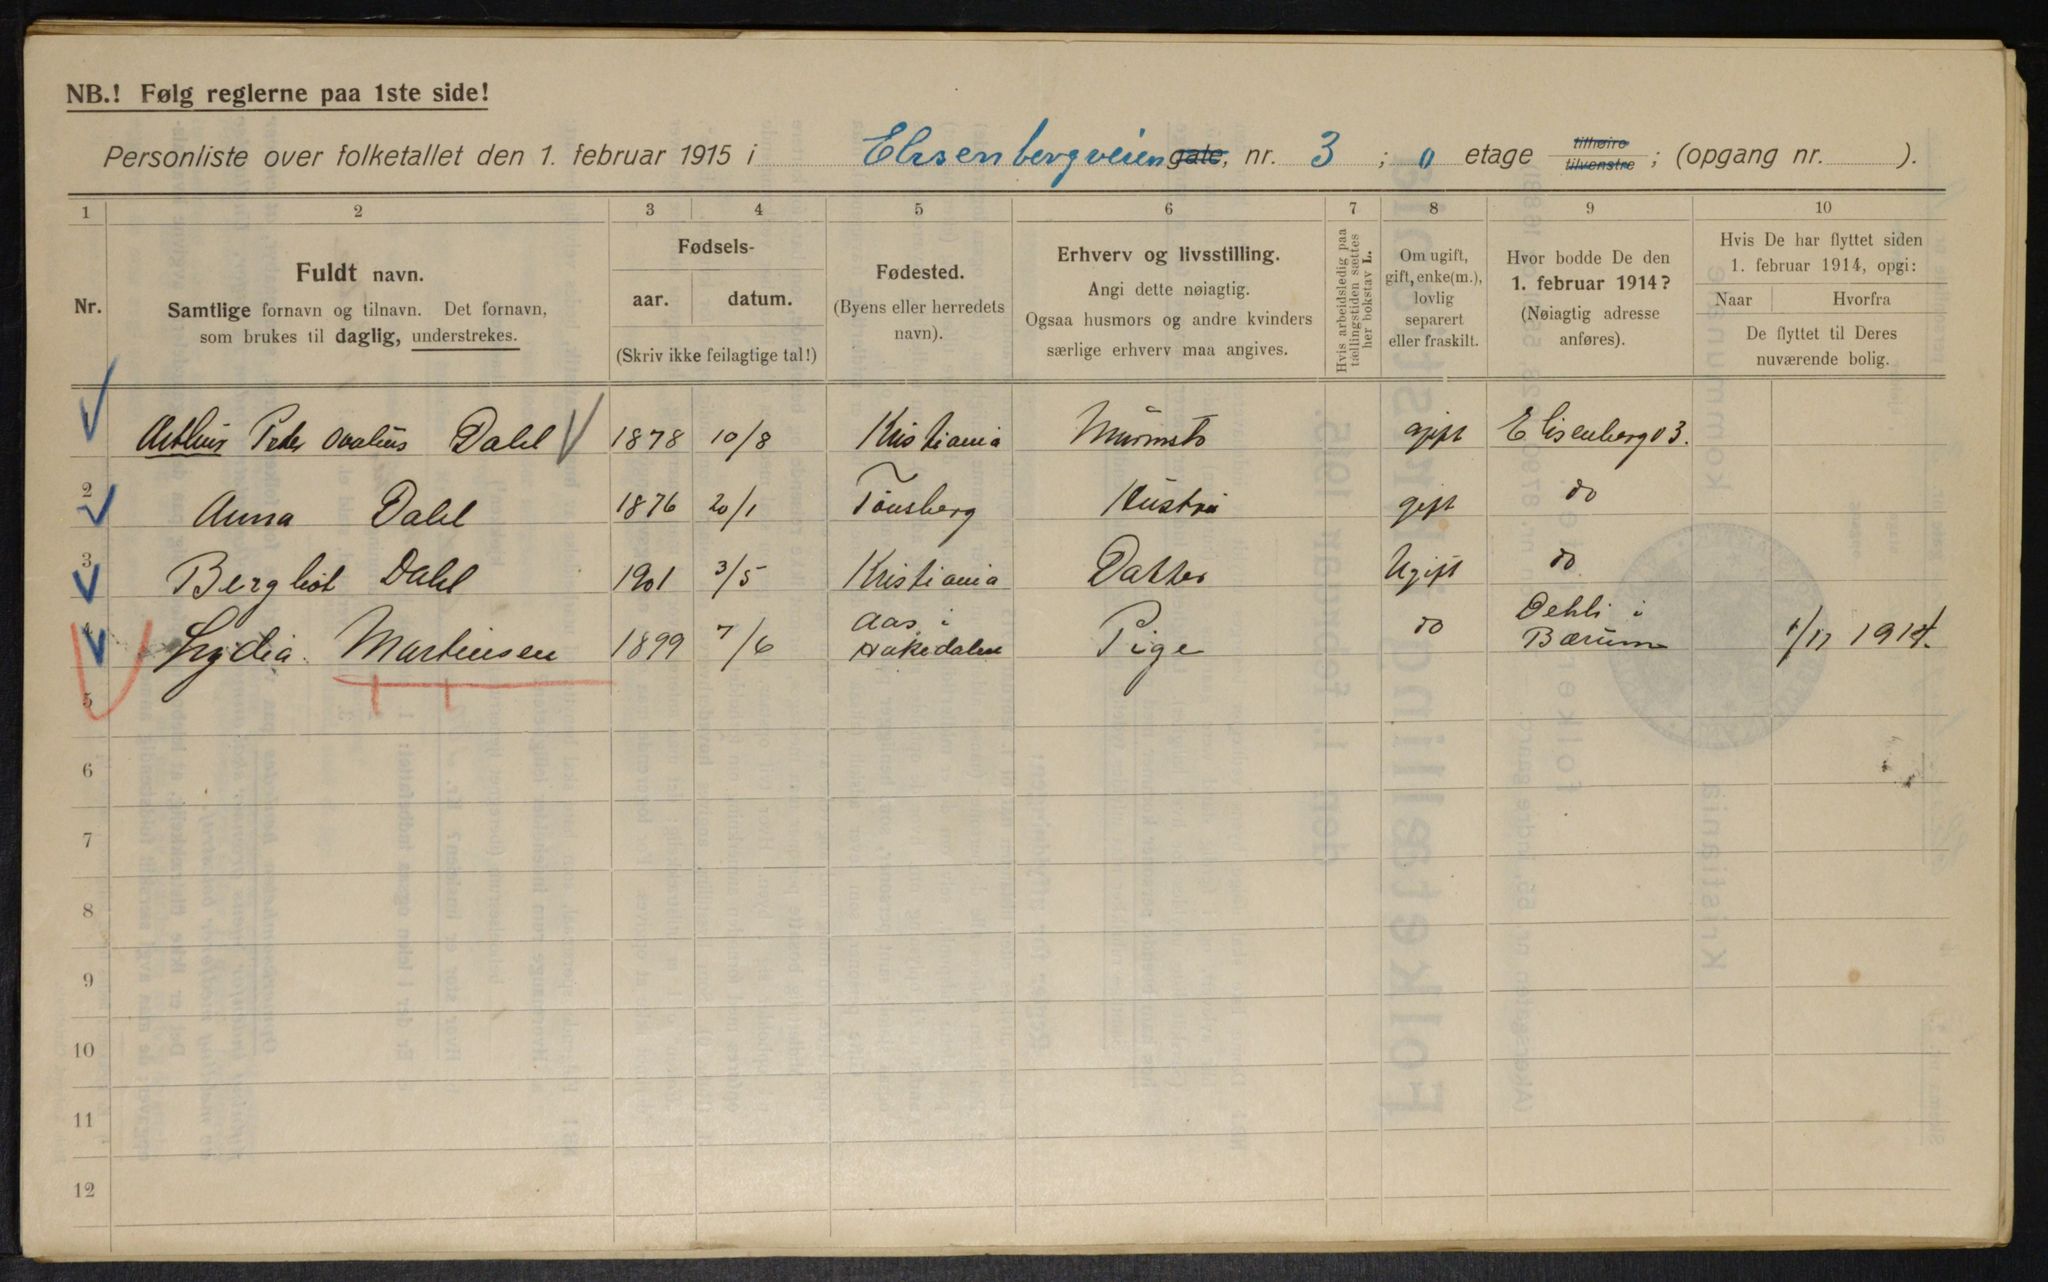 NB.! Følg reglerne paa 1ste side!
Personliste over folketallet den 1. februar 1915 i Elisenbergveien gate, nr. 3 ; 0 etage tilhøire tilvenstre ; (opgang nr. ).
1 2 3 4 5 6 7 8 9 10
Nr.
Fuldt navn.
Samtlige fornavn og tilnavn. Det fornavn,
som brukes til daglig, understrekes.
Fødsels-
aar. datum.
(Skriv ikke feilagtige tal!)
Fødested.
(Byens eller herredets
navn).
Erhverv og livsstilling.
Angi dette nøiagtig.
Ogsaa husmors og andre kvinders
særlige erhverv maa angives.
Hvis arbeidsledig paa
tællingstiden sættes
her bokstav L.
Om ugift,
gift, enke(m.),
lovlig
separert
eller fraskilt.
Hvor bodde De den
1. februar 1914?
(Nøiagtig adresse
anføres).
Hvis De har flyttet siden
1. februar 1914, opgi:
Naar Hvorfra
De flyttet til Deres
nuværende bolig.
1 Arthur Peder Dahl 1878 10/8 Kristiania Murmst gift Elisenbergv 3.
2 Anna Dahl 1876 20/1 Tønsberg Hustru gift do
3 Bergliot Dahl 1901 3/5 Kristiania Datter Ugift do
4 Lydia Martinsen 1899 7/6 Aas i Hakedalen Pige do Oehli i Bærum 1914.
5
6
7
8
9
10
11
12